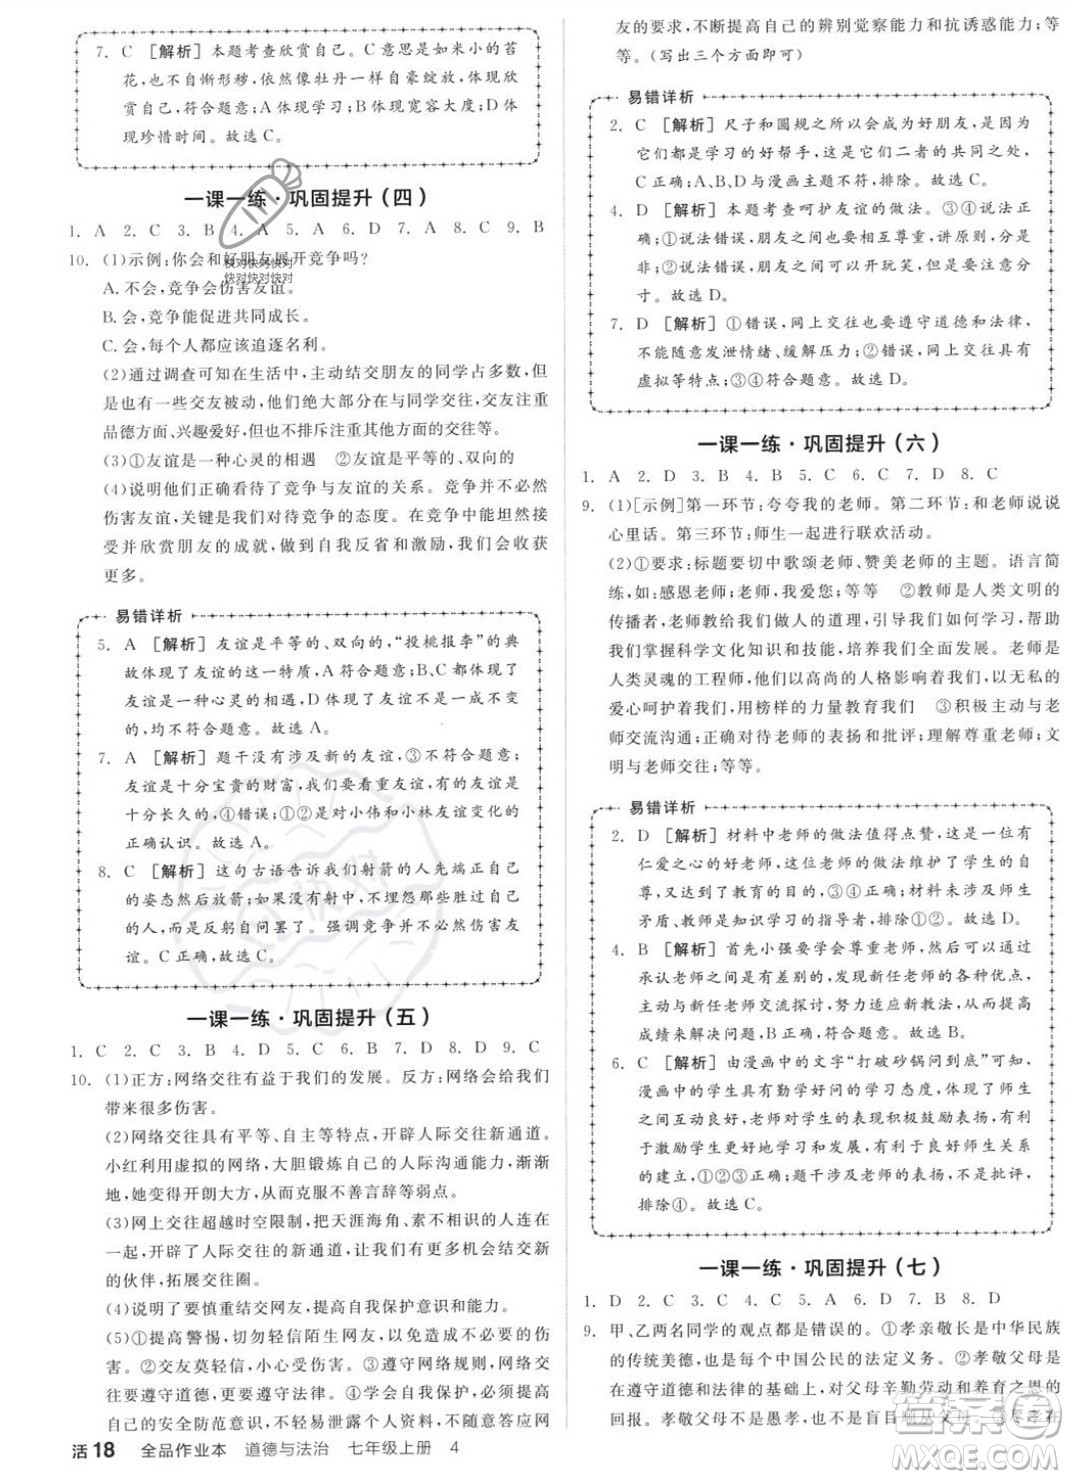 7. C [解析] 本题考查欣赏自己。C 意思是如米小的苔
花,也不自惭形秽,依然像牡丹一样自豪绽放,体现欣
赏自己,符合题意;A 体现学习;B 体现宽容大度;D 体
现珍惜时间。故选 C。
一课一练·巩固提升(四)
1. A 2. C 3. B 4. A 5. A 6. D 7. A 8. C 9. B
10. (1)示例:你会和好朋友展开竞争吗?
A. 不会,竞争会伤害友谊。
B. 会,竞争能促进共同成长。
C. 会,每个人都应该追逐名利。
(2)通过调查可知在生活中,主动结交朋友的同学占多数,但
也有一些交友被动,他们绝大部分在与同学交往中注重
品德方面、兴趣爱好,但不排斥注重成绩方面的交往等。
(3)①友谊是一种心灵的相遇 ②友谊是平等的、双向的
(4)说明他们正确看待了竞争与友谊的关系。竞争并不必然
伤害友谊,关键是我们对待竞争的态度。在竞争中能坦然接
受并欣赏朋友的成就,做到自我反省和激励,我们会收获
更多。
易错详析
5. A [解析] 友谊是平等的、双向的,“投桃报李”的典
故体现了友谊的这一特质,A 符合题意;B、C 体现了
友谊是一种心灵的相遇,D 体现了友谊不是一成不变
的,均不符合题意。故选 A。
7. A [解析] 题干没有涉及新的友谊,③不符合题意;
友谊是十分宝贵的财富,我们要重视友谊,但不是十
分长久的,④错误;①②是对小伟和小林友谊变化的
正确认识。故选 A。
8. C [解析] 这句古语告诉我们射箭的人先端正自己
的姿态然后发射,如果没有射中,不应抱怨胜过自己的,
而是反躬自问罢了。强调竞争并不必然伤害友
谊。C 正确,故选 C。
一课一练·巩固提升(五)
1. C 2. C 3. B 4. D 5. C 6. B 7. D 8. D 9. C
10. (1)正方:网络交往有益于我们的发展。反方:网络交往给我们
带来很多伤害。
(2)网络交往具有平等、自主等特点,开辟人际交往新通道。
小红利用虚拟的网络,大胆锻炼自己的人际沟通能力,渐渐
地,她变得开朗大方,从而克服不善言辞等弱点。
(3)网上交往可以超越时空限制,把天涯海角的人联系在
一起,开辟了人际交往的新通道,我们能在网络上结交新
的伙伴,拓展交往圈。
(4)说明了要慎重结交网友,提高自我保护意识和能力。
(5)①提高警惕,切勿轻信陌生网友,切勿泄露自己的家庭信
息。②交友莫轻信,偏信会受骗。③遵守网络规则,网络交往
要遵守道德,遵守法律。④学会自我保护,要有一定
的安全防范意识,不轻易泄露个人资料,不随意答应网
友的要求,不断提高自己的辨别觉察能力和抗诱惑能力;等
等。(写出三个方面即可)
易错详析
2. C [解析] 尺子和圆规之所以会成为好朋友,是因为
它们都是学习的好帮手,这是它们二者的共同之处,
C 正确;A、B、D 与漫画主题不符,排除。故选 C。
4. D [解析] 本题考查呵护友谊的做法。③④说法正确;
①说法错误,朋友之间也要相互尊重,讲原则,是非分
明;②说法错误,朋友之间也不能随便开玩笑,也要注意
影响。故选 D。
7. D [解析] ①错误,网上交往也要遵守道德和法律,
不能随意发泄情绪、缓解压力;②错误,网上交往具有
虚拟等特点;③④符合题意。故选 D。
一课一练·巩固提升(六)
1. A 2. D 3. B 4. B 5. C 6. C 7. D 8. C
9. (1)[示例]第一环节:夸夸我的老师。第二环节:和老师说说
心里话。第三环节:师生一起进行联欢活动。
(2)①要求:标题要切中歌颂老师、赞美老师的主题。语言简
练,如:感恩老师;老师,我爱您;等等 ②教师是人类文明的
传播者,老师教给我们做人做事的道理,引导我们学习知识,
帮我们掌握科学文化知识和技能,培养我们全面发展。老师是
人类灵魂的工程师,他们以高尚的人格影响我们,以无私的
爱心呵护我们,用榜样的力量教育我们 ③积极主动与老
师交流沟通;正确对待老师的表扬和批评;理解尊重老师;文
明与老师交往;等等。
易错详析
2. D [解析] 材料中老师的做法值得点赞,这是一位有
仁爱之心的好老师,这位老师的做法维护了学生的自
尊,达到了教育的目的,③④正确;材料未涉及师生
矛盾、教师是知识学习的指导者,排除①②。故选 D。
4. B [解析] 首先小强要学会尊重老师,然后可以通过
承认老师之间是有差别的,发现新任老师的各种优点,
主动与新任老师交流探讨,努力适应新教法,以提高
成绩来解决问题,B 正确;A、C、D 说法错误。故选 B。
6. C [解析] 由漫画中的文字“打破砂锅问到底”可知,
漫画中的学生具有勤学好问的学习态度,体现了师生
之间互动良好;老师对学生的表现积极鼓励表扬,有利
于激励学生更好地学习和发展,有利于促进师生关系的
融洽,①②③正确;题干涉及的是表扬,不是批评,
排除④。故选 C。
一课一练·巩固提升(七)
1. D 2. C 3. C 4. C 5. A 6. D 7. B 8. D
9. 甲、乙两名同学的观点都是错误的。①孝亲敬长是中华民族
的传统美德,也是中国公民的法定义务。②孝敬父母要
在遵守道德和法律的基础上,对父母辛勤劳动和养育之恩的
活18 全品作业本 道德与法治 七年级上册 4
快对快对快对
快对快对快对
答案圈
MXQE.COM